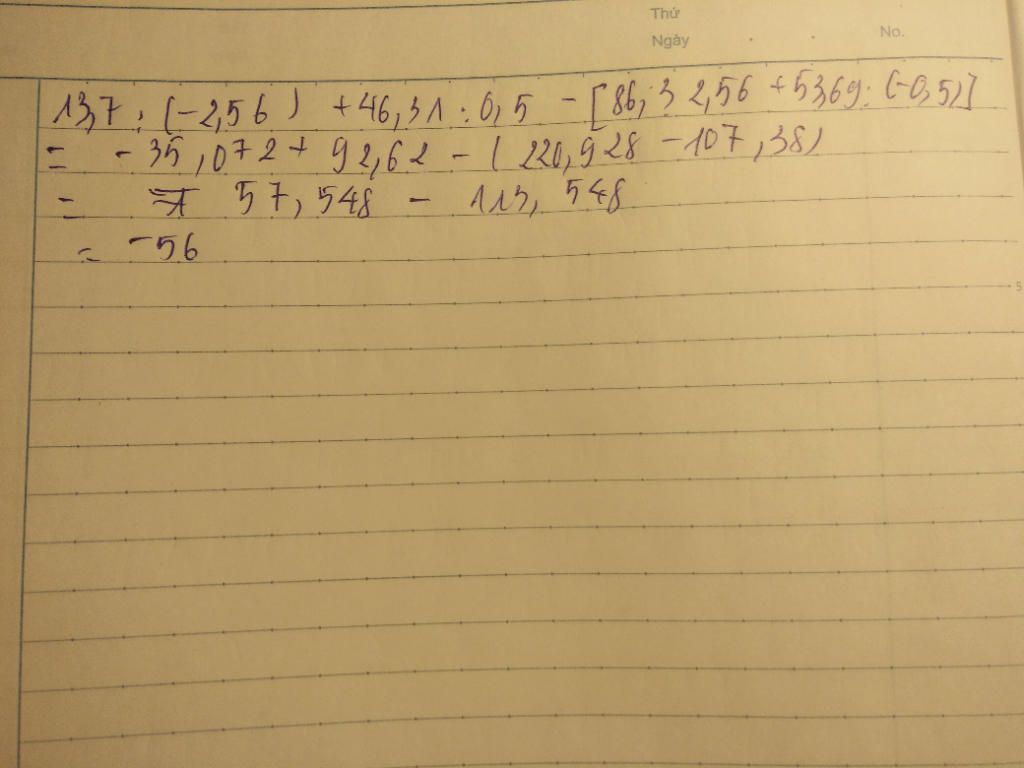 Thứ
Ngày . . No.
13,7 : (-2,56) + 46,31 : 0,5 - [86,3 2,56 + 53,69 : (-0,5)]
= - 35,072 + 92,62 - (220,928 - 107,38)
= 57,548 - 113,548
= -56
5